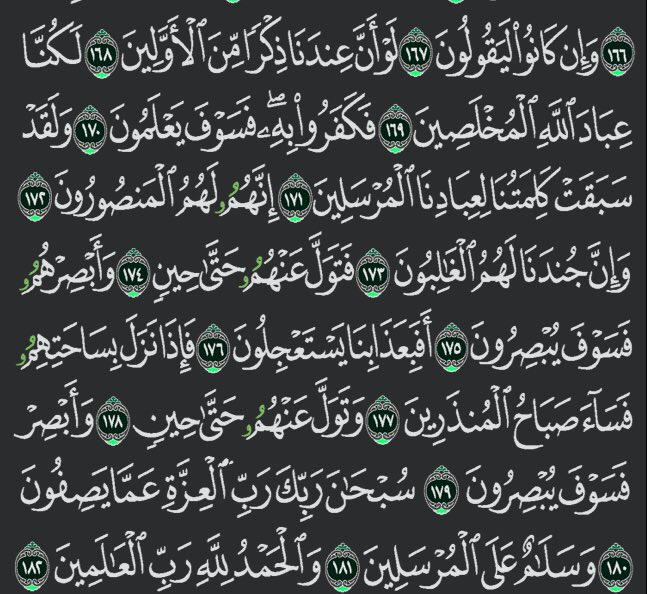 ١٦٦ وَإِن كَانُواْ لَيَقُولُونَ ١٦٧ لَوْ أَنَّ عِندَنَا ذِكْرًا مِّنَ ٱلْأَوَّلِينَ ١٦٨ لَكُنَّا
عِبَادَ ٱللَّهِ ٱلْمُخْلَصِينَ ١٦٩ فَكَفَرُواْ بِهِۦۖ فَسَوْفَ يَعْلَمُونَ ١٧٠ وَلَقَدْ
سَبَقَتْ كَلِمَتُنَا لِعِبَادِنَا ٱلْمُرْسَلِينَ ١٧١ إِنَّهُمُۥ لَهُمُ ٱلْمَنصُورُونَ ١٧٢
وَإِنَّ جُندَنَا لَهُمُ ٱلْغَٰلِبُونَ ١٧٣ فَتَوَلَّ عَنْهُمُۥ حَتَّىٰ حِينٍ ١٧٤ وَأَبْصِرْهُمُۥ
فَسَوْفَ يُبْصِرُونَ ١٧٥ أَفَبِعَذَابِنَا يَسْتَعْجِلُونَ ١٧٦ فَإِذَا نَزَلَ بِسَاحَتِهِمُۥ
فَسَآءَ صَبَاحُ ٱلْمُنذَرِينَ ١٧٧ وَتَوَلَّ عَنْهُمُۥ حَتَّىٰ حِينٍ ١٧٨ وَأَبْصِرْ
فَسَوْفَ يُبْصِرُونَ ١٧٩ سُبْحَٰنَ رَبِّكَ رَبِّ ٱلْعِزَّةِ عَمَّا يَصِفُونَ
١٨٠ وَسَلَٰمٌ عَلَى ٱلْمُرْسَلِينَ ١٨١ وَٱلْحَمْدُ لِلَّهِ رَبِّ ٱلْعَٰلَمِينَ ١٨٢